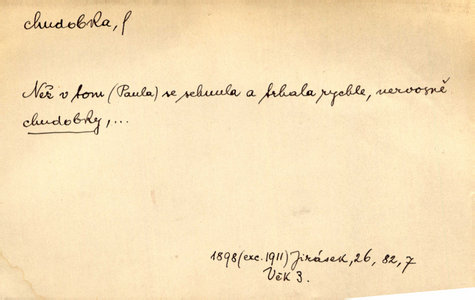 chudobka, f
Než v tom (Paula) se schnula a trhala rychle, nervosně
chudobky, ...
1898 (exc. 1911) Jirásek, 26, 82, 7
Věk 3.